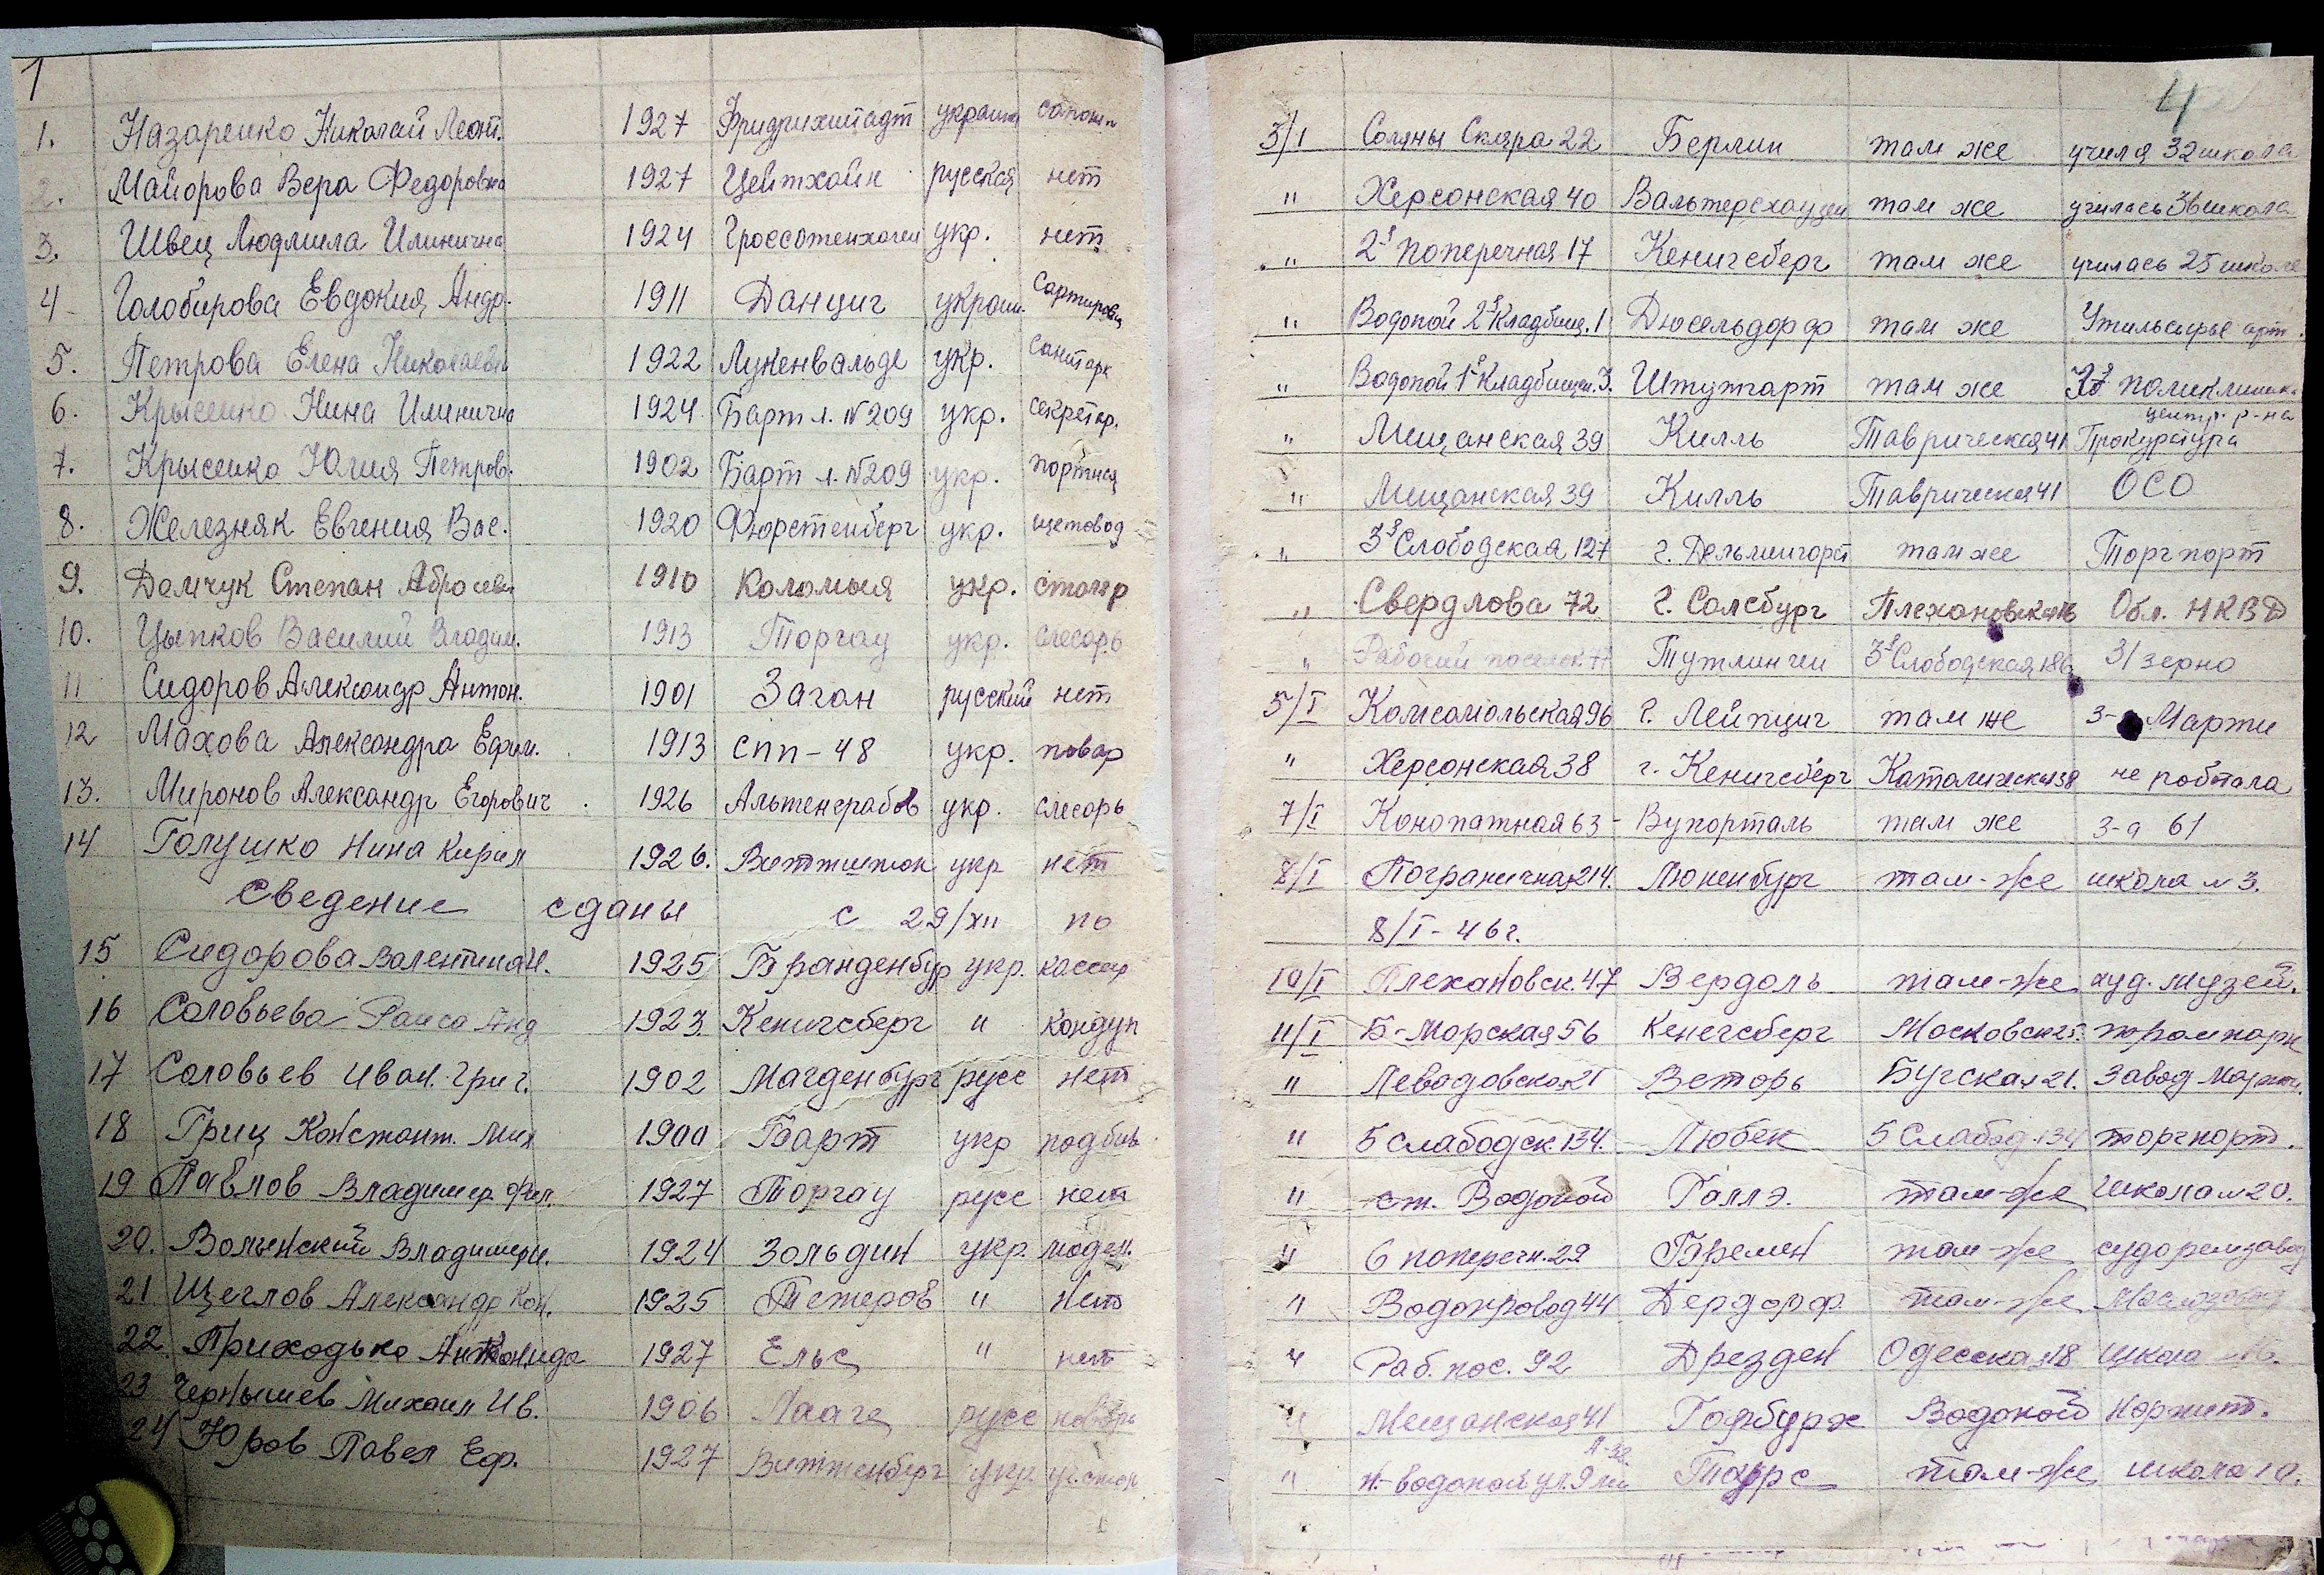 1
1. Назаренко Николай Леонт. 1927 Фридрихштадт украин сапожн
2. Майорова Вера Федоровна 1927 Цейтхайн русская нет
3. Швец Людмила Илинична 1924 укр. нет
4 Голобирова Евдокия Андр. 1911 Данциг украин. Сортировщ
5. Петрова Елена Николаевн 1922 Лукенвальде укр. санитарк
6. Крысенко Нина Илинична 1924. Барт л. №209 укр. секретар.
7. Крысенко Юлия Петров. 1902 Барт л. №209 укр. портная
8. Железняк Евгения Вас. 1920 Фюрстенберг укр. щетовод
9. Демчук Степан 1910 Коломыя укр. столяр
10. Цыпков Василий Владим. 1913 Торгау укр. слесарь
11 Сидоров Александр Антон. 1901 Заган русский нет
12 Махова Александра Ефим. 1913 спп-48 укр. повар
13. Миронов Александр Егорович 1926 Альтенграбов укр. слесарь
14 Голушко Нина Кирил 1926. укр нет
Сведение сданы с 29/XII по
15 Сидорова Валентина Н. 1925 Бранденбур укр. кассир
16 Соловьева Раиса Анд 1923 Кенигсберг " кондук
17 Соловьев Иван. Григ. 1902 Магденбург русс нет
18 Гриц Констант. Мих 1900 Барт укр
19 Павлов Владимир Фил. 1927 Торгау русс нет
20. Волынский Владимир И. 1924 Зольдин укр. модел.
21 Щеглов Александр Кон. 1925 Тетеров " нет
22. Приходько Антонида 1927 Ельс " нет
23 Чернышев Михаил Ив. 1906 Лааге русс
24 Юров Павел Еф. 1927 Виттенберг укр
4
3/I Соляны Скляра 22 Берлин там же учился 32 школа
" Херсонская 40 Вальтерсхаузен там же училась 36 школа
" 2я поперечная 17 Кенигсберг там же училась 25 школе
" Водопой 2я Кладбищ. 1 Дюсельдорф там же Утильсырье арт.
" Водопой 1я Кладбищен. 3. Штутгарт там же поликлиник.
центр. р-на
" Мещанская 39 Килль Таврическая 41 Прокуратура
" Мещанская 39 Килль Таврическая 41 ОСО
" 3я Слободская 127 г. Дельменгорст там же Торг порт
" Свердлова 72 г. Салсбург Плехановская Обл. НКВД
" Рабочий поселок 77 Тутлинген 3я Слободская 186 З/зерно
5/I Комсомольская 96 г. Лейпциг там же з-д Марти
" Херсонская 38 г. Кенигсберг Каталическая 38 не работала
7/I Конопатная 63 - Вупорталь там же з-д 61
8/I Пограничная 214. Люненбург там-же школа № 3.
8/I-46г.
10/I Плехановск. 47 Вердоль там-же худ. музей.
11/I Б-Морская 56 Кенегсберг Московск 25. трампарк
" Левадовская 21 Веторь Бугская 21. Завод Марти.
" 5 Слабодск. 134. Любек 5 Слабод. 134 торгпорт.
" ст. Водопой Галлэ. там-же Школа № 20.
" 6 поперечн. 29 Бремен там-же судоремзавод
" Водопровод 44 Дердорф. там-же Маслозавод
" Раб. пос. 92 Дрезден Одесская 18 школа
" Мещанская 41 Гамбург Водопой
" Н-водопой ул. 9 там-же школа 10.